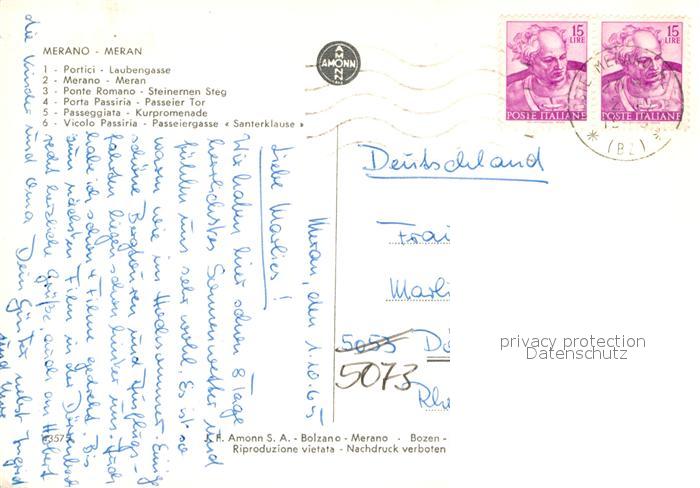 MERANO - MERAN
1 - Portici - Laubengasse
2 - Merano - Meran
3 - Ponte Romano - Steinernen Steg
4 - Porta Passiria - Passeier Tor
5 - Passeggiata - Kurpromenade
6 - Vicolo Passiria - Passeiergasse « Santerklause »
AMONN
AMONN
15
LIRE
POSTE ITALIANE
15
LIRE
POSTE ITALIANE
(BZ)
Meran, den 1.10.65
Liebe Marlies!
Wir haben hier schon 8 Tage
herrlichstes Sonnenwetter und
fühlen uns sehr wohl. Es ist so
warm wie im Hochsommer. Einige
schöne Bergtouren und Ausflugs-
fahrten liegen schon hinter uns. Auch
habe ich schon 4 Filme gedreht. Bis
zum nächsten Film in der
recht herzliche Grüße, auch an Hubert
die Kinder und Oma Dein Günter nebst Ingrid
und Uwe
Deutschland
Frau
Marli
5055 Dü
5073
Rhe
privacy protection
Datenschutz
J. F. Amonn S. A. - Bolzano - Merano - Bozen -
Riproduzione vietata - Nachdruck verboten